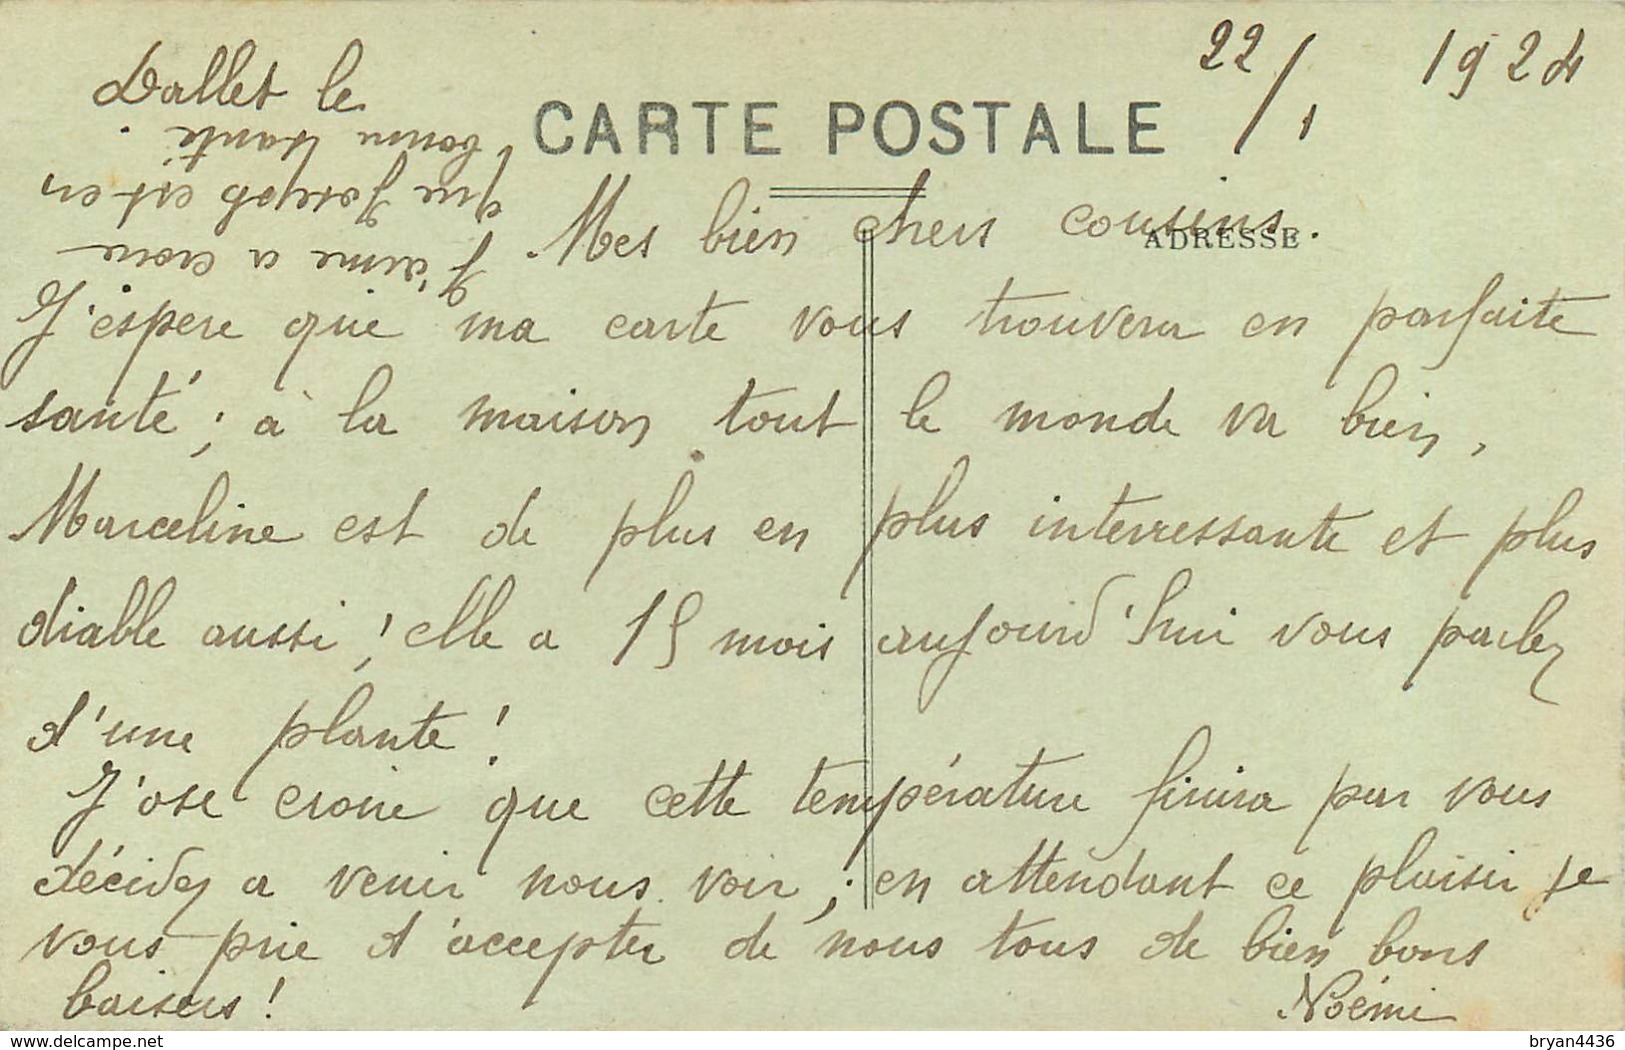 Dallet le 22/1 1924
CARTE POSTALE
ADRESSE
Mes bien chers cousins.
J'espere que ma carte vous trouvera en parfaite
santé ; à la maison tout le monde va bien,
Marceline est de plus en plus interressante et plus
diable aussi ! elle a 15 mois aujourd'hui vous parlez
d'une plante !
J'ose croire que cette température finira par vous
décidez a venir nous voir ; en attendant ce plaisir je
vous prie d'accepter de nous tous de bien bons
baisers !
Noémi
J'aime a croire
que Joseph est en
bonne santé.
www.delcampe.net
bryan4436